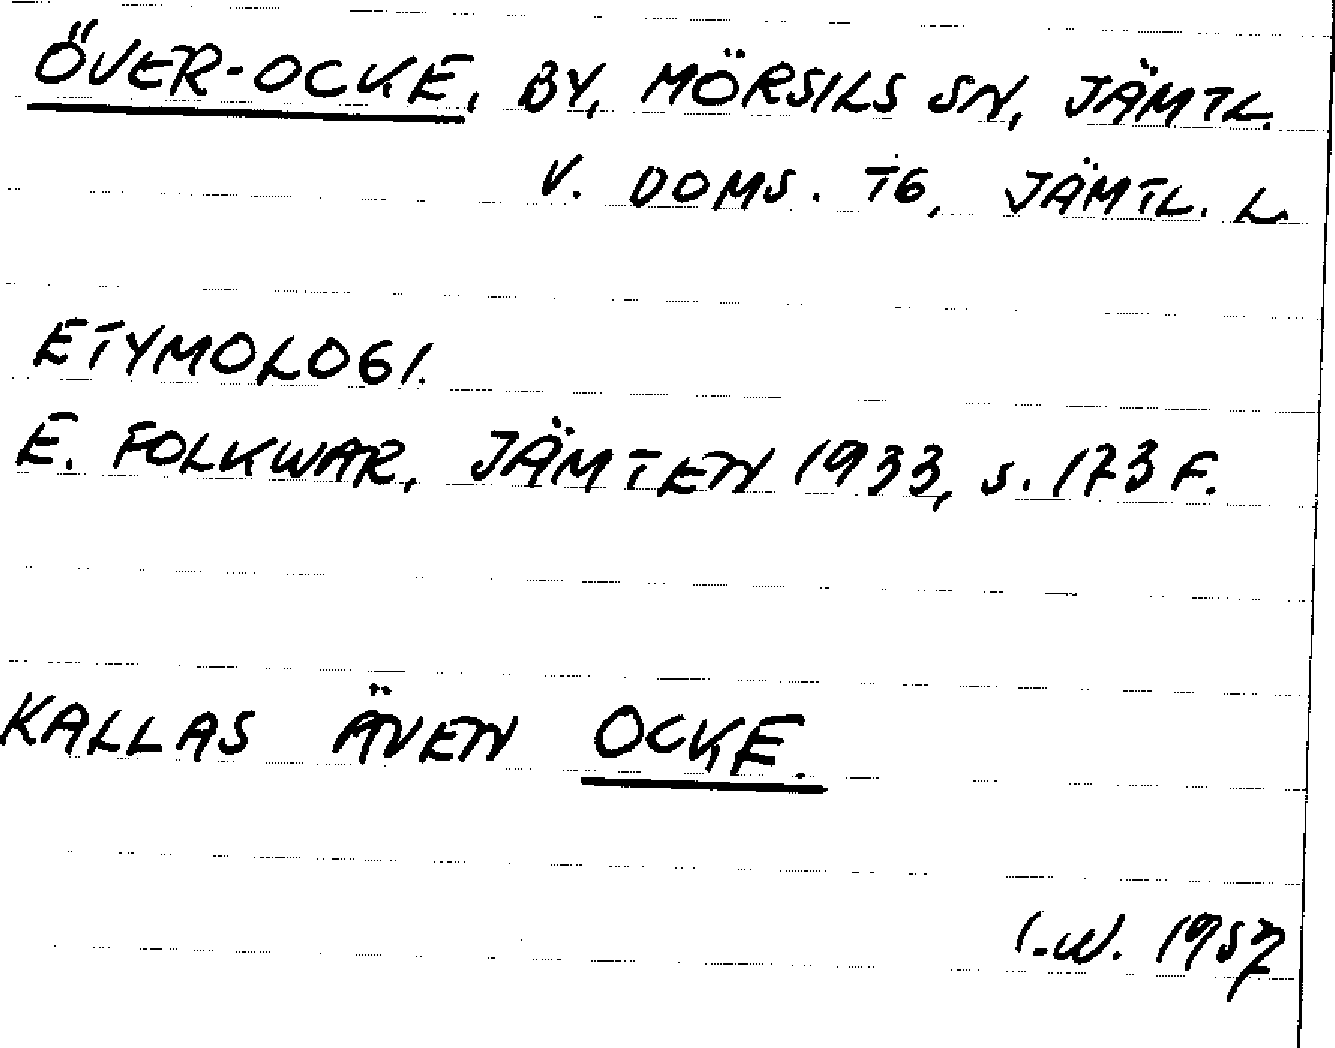 ÖVER-OCKE, BY, MÖRSILS SN, JÄMTL.
V. DOMS. TG, JÄMTL. L.
ETYMOLOGI.
E. FOLKWAR, JÄMTEN 1933, S. 173 F.
KALLAS ÄVEN OCKE.
I.W. 1957